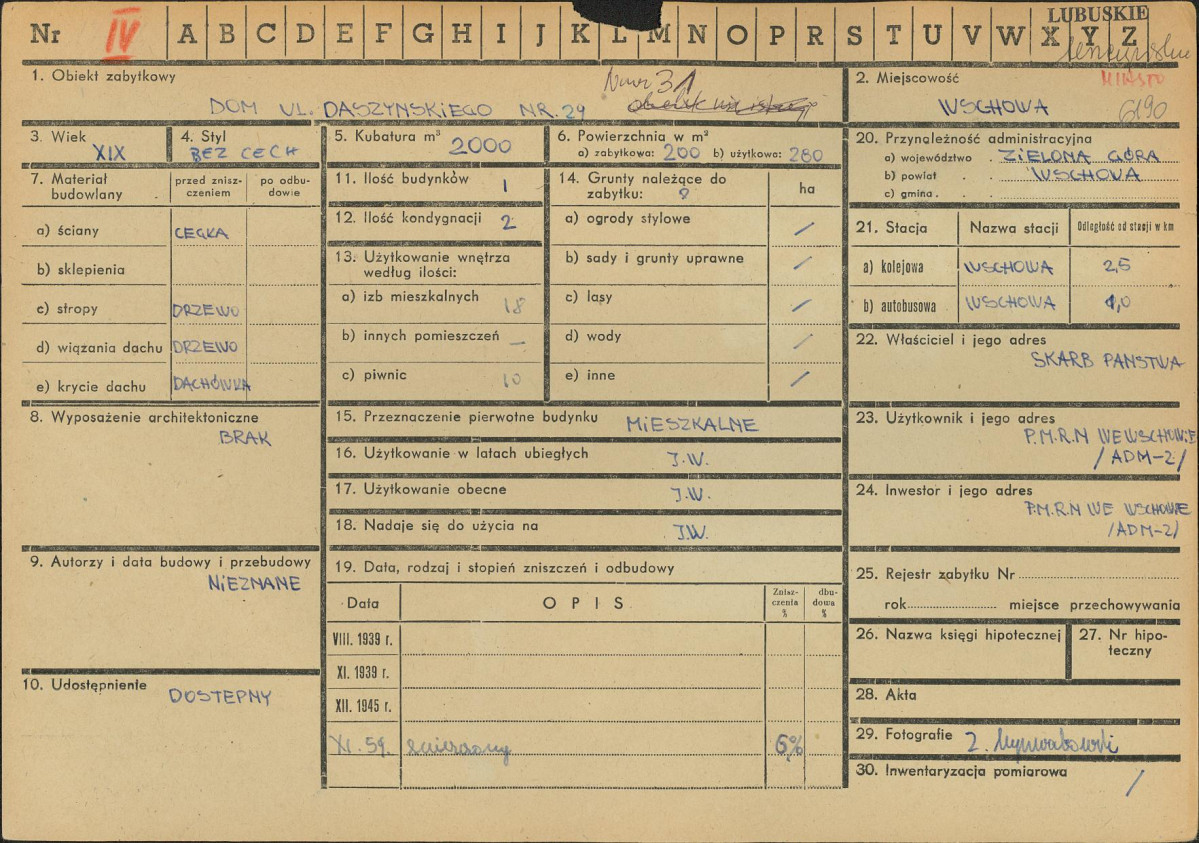 Nr IV A B C D E F G H I J K L M N O P R S T U V W X Y Z
LUBUSKIE
1. Obiekt zabytkowy
31
DOM UL. DASZYŃSKIEGO NR. 29
2. Miejscowość
MIASTO
WSCHOWA
6190
3. Wiek
XIX
4. Styl
BEZ CECH
5. Kubatura m³
2000
6. Powierzchnia w m²
a) zabytkowa: 200 b) użytkowa: 280
20. Przynależność administracyjna
a) województwo . ZIELONA GÓRA
b) powiat . . WSCHOWA
c) gmina . .
7. Materiał budowlany
przed znisz-
czeniem
po odbu-
dowie
a) ściany CEGŁA
b) sklepienia
c) stropy DRZEWO
d) wiązania dachu DRZEWO
e) krycie dachu DACHÓWKA
11. Ilość budynków 1
12. Ilość kondygnacji 2
13. Użytkowanie wnętrza
według ilości:
a) izb mieszkalnych 18
b) innych pomieszczeń —
c) piwnic 10
14. Grunty należące do
zabytku: ?
ha
a) ogrody stylowe /
b) sady i grunty uprawne /
c) lasy /
d) wody /
e) inne /
21. Stacja Nazwa stacji Odległość od stacji w km
a) kolejowa WSCHOWA 2,5
b) autobusowa WSCHOWA 1,0
22. Właściciel i jego adres
SKARB PAŃSTWA
8. Wyposażenie architektoniczne
BRAK
15. Przeznaczenie pierwotne budynku MIESZKALNE
16. Użytkowanie w latach ubiegłych J.W.
17. Użytkowanie obecne J.W.
18. Nadaje się do użycia na J.W.
23. Użytkownik i jego adres
P.M.R.N WE WSCHOWIE
/ADM-2/
24. Inwestor i jego adres
P.M.R.N WE WSCHOWIE
/ADM-2/
9. Autorzy i data budowy i przebudowy
NIEZNANE
10. Udostępnienie
DOSTEPNY
19. Data, rodzaj i stopień zniszczeń i odbudowy
Data OPIS
Znisz-
czenia
%
dbu-
dowa
%
VIII. 1939 r.
XI. 1939 r.
XII. 1945 r.
XI. 59. 6%
25. Rejestr zabytku Nr
rok miejsce przechowywania
26. Nazwa księgi hipotecznej
27. Nr hipo-
teczny
28. Akta
29. Fotografie
30. Inwentaryzacja pomiarowa /